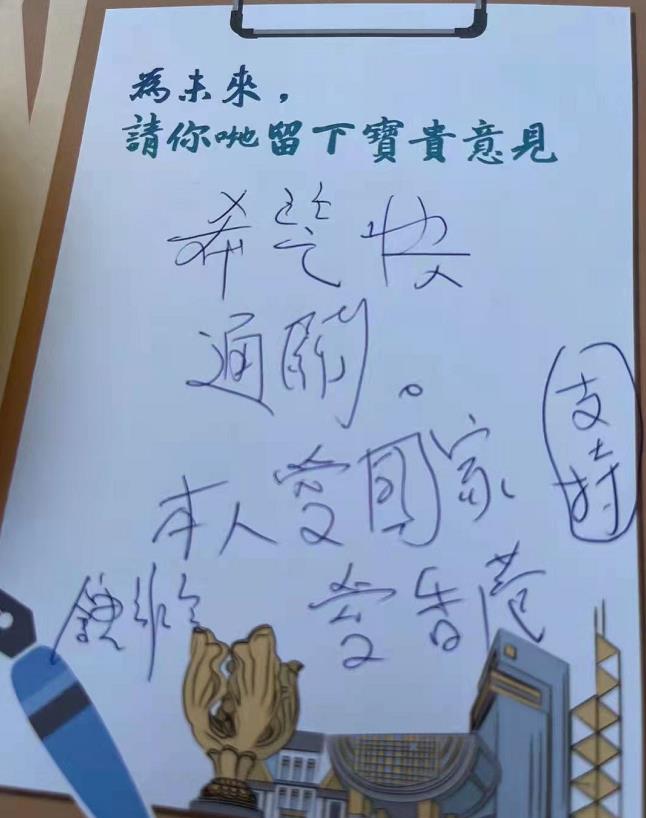 為未來，
請你哋留下寶貴意見
希望快
通關。
支持
本人愛國家
愛香港